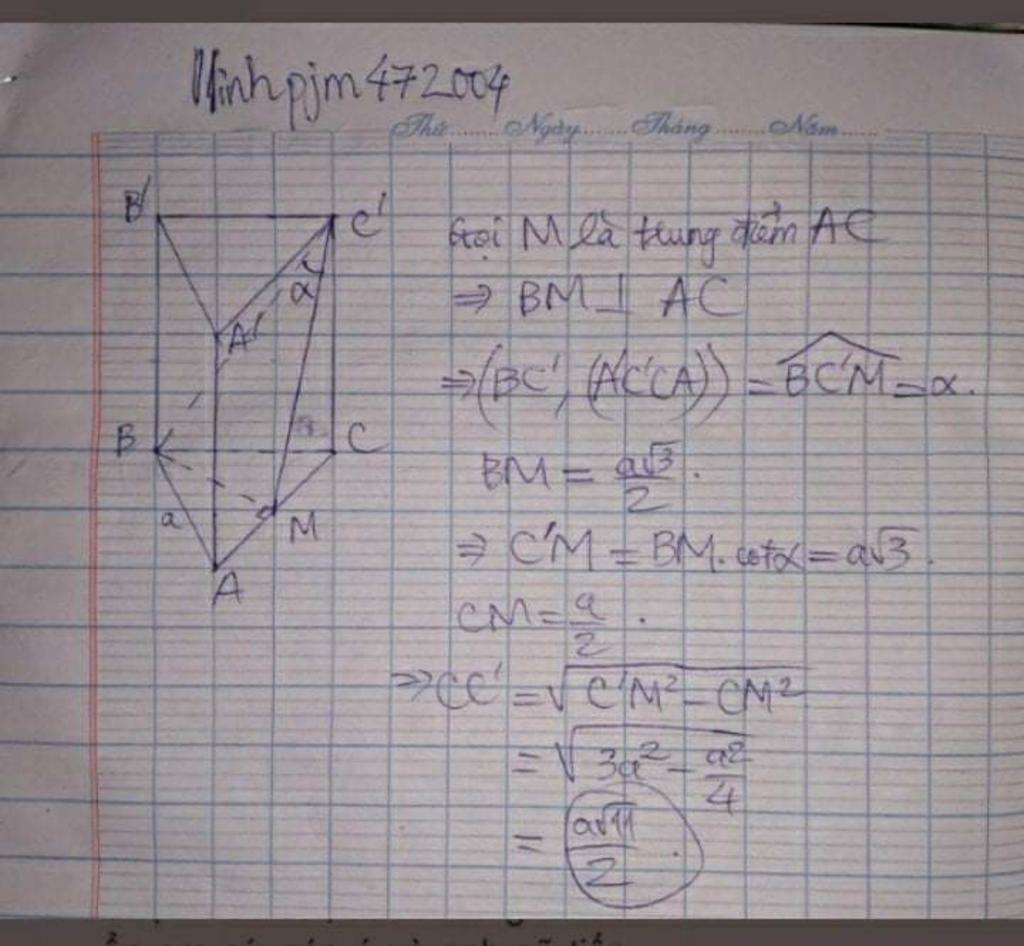 Minhpjm472004
Thứ........Ngày........Tháng........Năm......
B'
C'
α
A'
B
C
a
M
A
Gọi M là trung điểm AC
⇒ BM ⊥ AC
⇒ (BC', (A'C'CA)) = \widehat{BC'M} = α.
BM = \frac{a√3}{2}.
⇒ C'M = BM. cotα = a√3.
CM = \frac{a}{2}.
⇒ CC' = \sqrt{C'M² - CM²}
= \sqrt{3a² - \frac{a²}{4}}
= \frac{a√11}{2}.